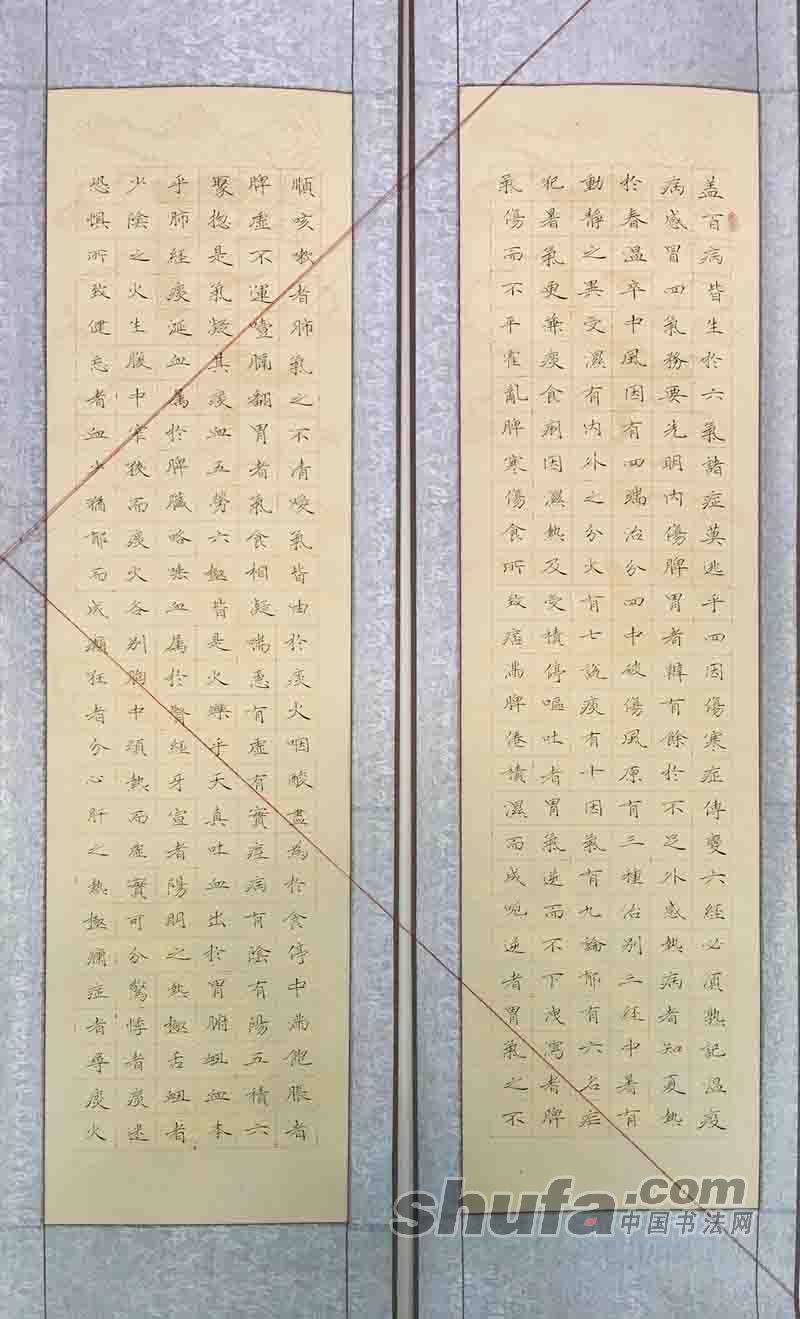 盖百病皆生於六氣諸症莫逃乎四因傷寒症傳變六經必須熟記温疫
病感冒四氣務要先明内傷脾胃者辨有餘於不足外感熱病者知夏熱
於春温卒中風因有四端治分四中破傷風原有三種治别三经中暑有
動静之異受濕有内外之分火有七說痰有十因氣有九論郁有六名瘧
犯暑氣更兼痰食痢因濕熱及受積停嘔吐者胃氣逆而不下洩瀉者脾
氣傷而不平霍亂脾寒傷食所致痞满脾倦積濕而成呃逆者胃氣之不
順咳嗽者肺氣之不清嗳氣皆由於痰火咽酸盡為於食停中满饱脹者
脾虚不運噎膈翻胃者氣食相凝喘急有虚有實痙病有陰有陽五積六
聚捴是氣凝其痰血五勞六極皆是火爍乎天真吐血出於胃腑衄血本
乎肺經痰涎血属於脾臟咯唾血属於腎經牙宣者陽明之熱極舌衄者
少陰之火生腹中窄狭而痰火各别胸中煩熱而虚實可分驚悸者痰迷
恐惧所致健忘者血少憂郁而成癲狂者分心肝之熱極癇症者尋痰火
shufa.com
中国书法网